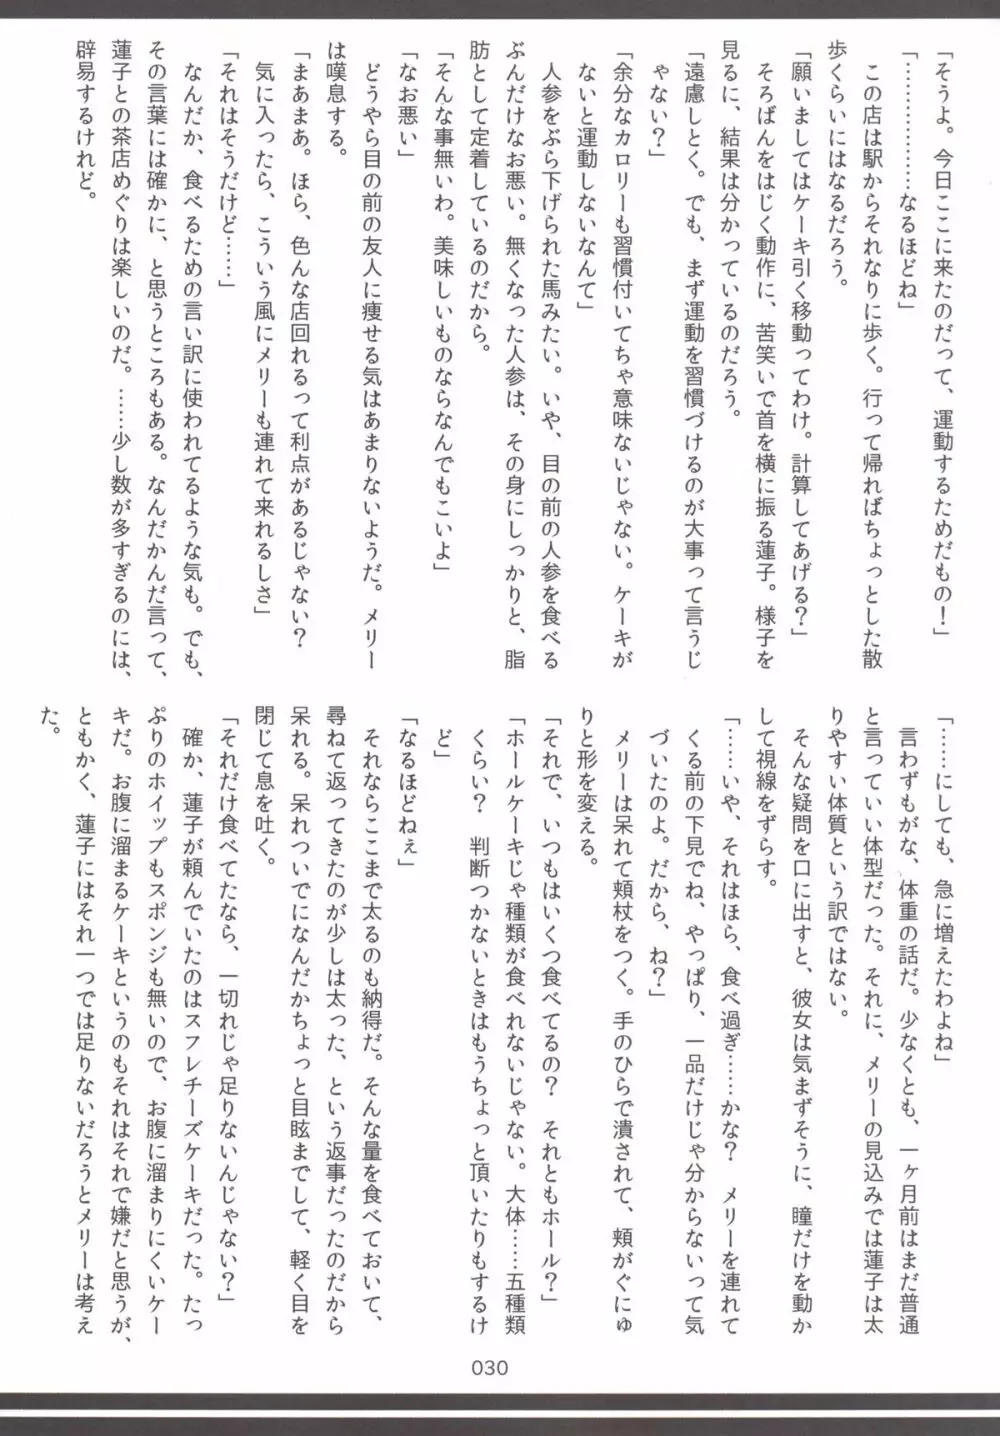 「そうよ。今日ここに来たのだって、運動するためだもの！」
「………………なるほどね」
　この店は駅からそれなりに歩く。行って帰ればちょっとした散
歩くらいにはなるだろう。
「願いましてはケーキ引く移動ってわけ。計算してあげる？」
　そろばんをはじく動作に、苦笑いで首を横に振る蓮子。様子を
見るに、結果は分かっているのだろう。
「遠慮しとく。でも、まず運動を習慣づけるのが大事って言うじ
ゃない？」
「余分なカロリーも習慣付いてちゃ意味ないじゃない。ケーキが
ないと運動しないなんて」
　人参をぶら下げられた馬みたい。いや、目の前の人参を食べる
ぶんだけなお悪い。無くなった人参は、その身にしっかりと、脂
肪として定着しているのだから。
「そんな事無いわ。美味しいものならなんでもこいよ」
「なお悪い」
　どうやら目の前の友人に痩せる気はあまりないようだ。メリー
は嘆息する。
「まあまあ。ほら、色んな店回れるって利点があるじゃない？
気に入ったら、こういう風にメリーも連れて来れるしさ」
「それはそうだけど……」
　なんだか、食べるための言い訳に使われてるような気も。でも、
その言葉には確かに、と思うところもある。なんだかんだ言って、
蓮子との茶店めぐりは楽しいのだ。……少し数が多すぎるのには、
辟易するけれど。
「……にしても、急に増えたわよね」
　言わずもがな、体重の話だ。少なくとも、一ヶ月前はまだ普通
と言っていい体型だった。それに、メリーの見込みでは蓮子は太
りやすい体質という訳ではない。
　そんな疑問を口に出すと、彼女は気まずそうに、瞳だけを動か
して視線をずらす。
「……いや、それはほら、食べ過ぎ……かな？　メリーを連れて
くる前の下見でね、やっぱり、一品だけじゃ分からないって気
づいたのよ。だから、ね？」
　メリーは呆れて頬杖をつく。手のひらで潰されて、頬がぐにゅ
りと形を変える。
「それで、いつもはいくつ食べてるの？　それともホール？」
「ホールケーキじゃ種類が食べれないじゃない。大体……五種類
くらい？　判断つかないときはもうちょっと頂いたりもするけ
ど」
「なるほどねぇ」
　それならここまで太るのも納得だ。そんな量を食べておいて、
尋ねて返ってきたのが少しは太った、という返事だったのだから
呆れる。呆れついでになんだかちょっと目眩までして、軽く目を
閉じて息を吐く。
「それだけ食べてたなら、一切れじゃ足りないんじゃない？」
　確か、蓮子が頼んでいたのはスフレチーズケーキだった。たっ
ぷりのホイップもスポンジも無いので、お腹に溜まりにくいケー
キだ。お腹に溜まるケーキというのもそれはそれで嫌だと思うが、
ともかく、蓮子にはそれ一つでは足りないだろうとメリーは考え
た。
030